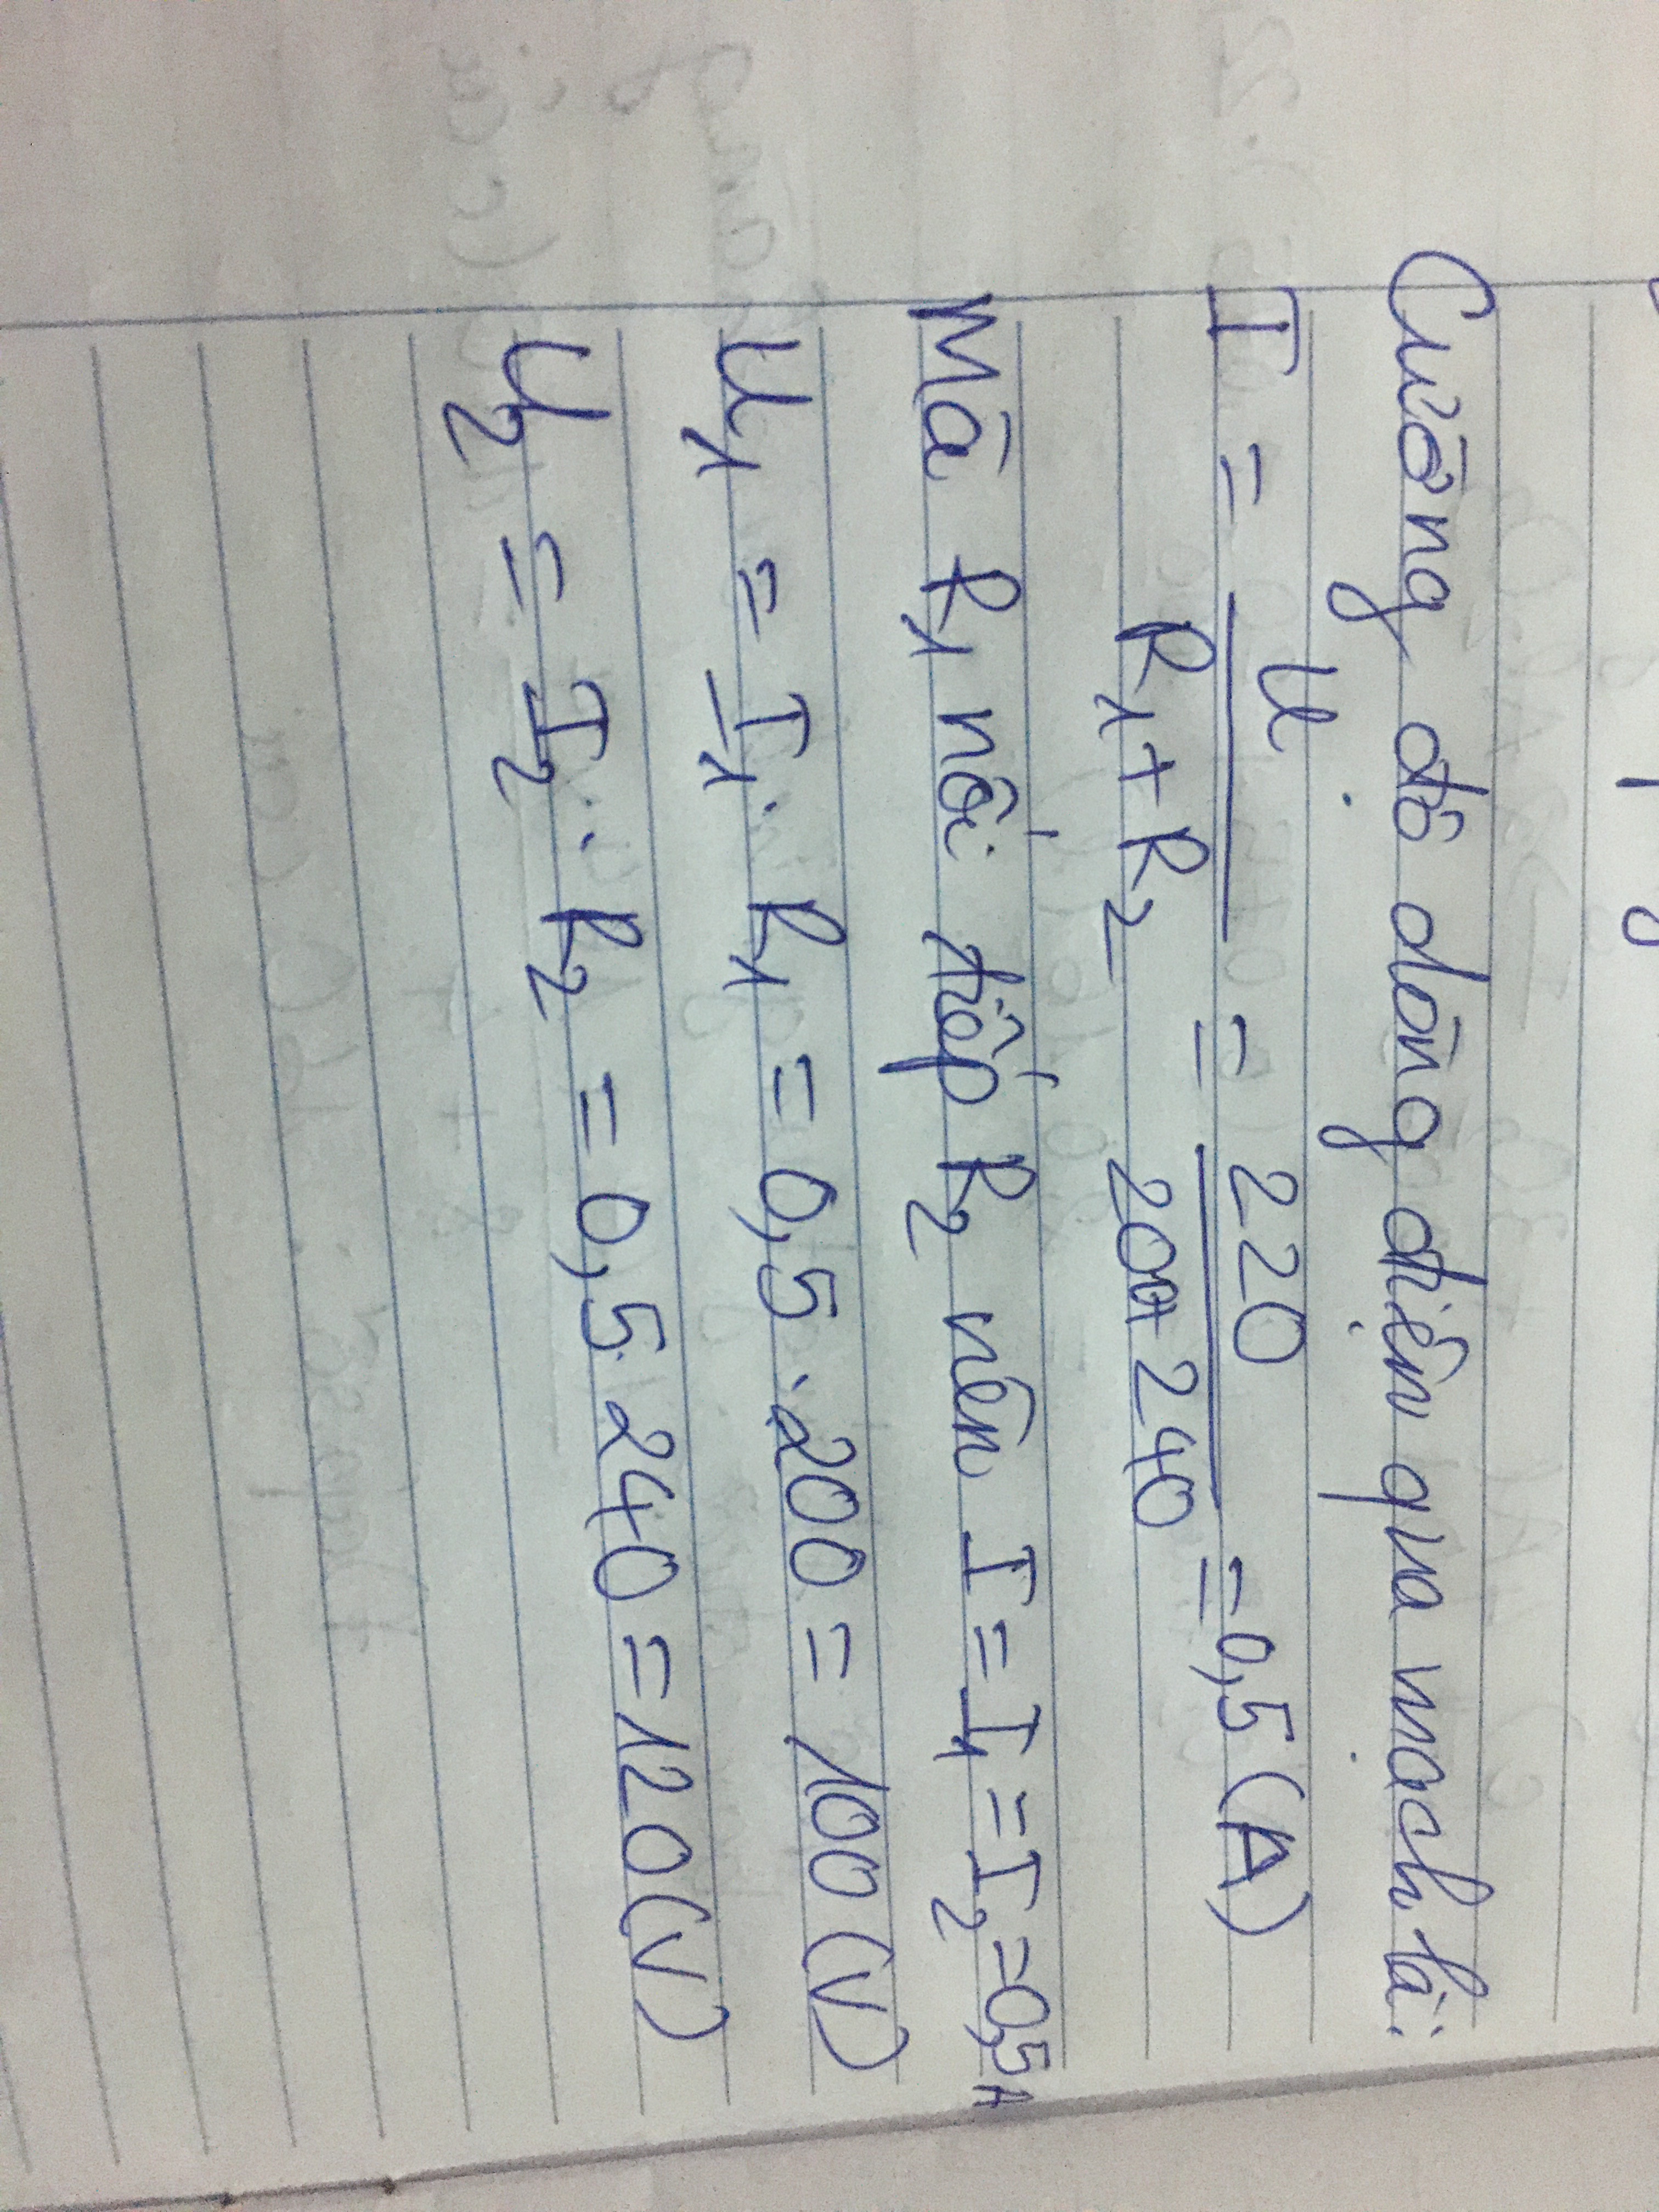 Cường độ dòng điện qua mạch là:
I = U / R1 + R2 = 220 / 200 + 240 = 0,5 (A)
Mà R1 nối tiếp R2 nên I = I1 = I2 = 0,5A
U1 = I1 . R1 = 0,5 . 200 = 100 (V)
U2 = I2 . R2 = 0,5 . 240 = 120 (V)